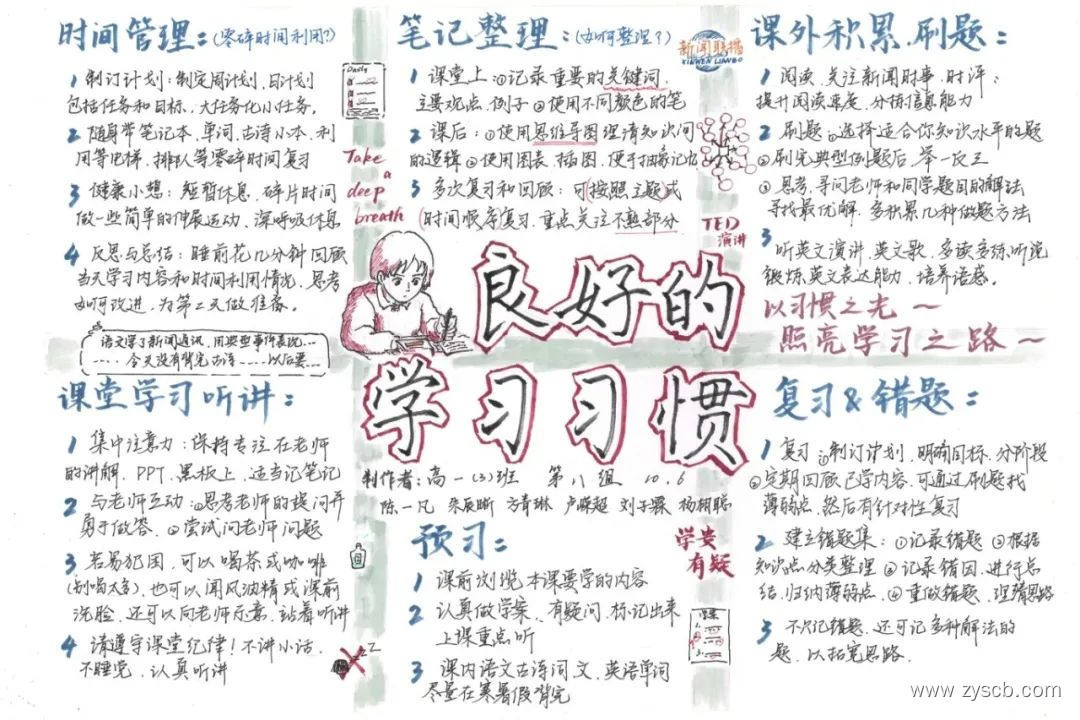 时间管理：(零碎时间利用?)
1 制订计划：制定周计划、日计划
包括任务和目标，大任务化小任务。
2 随身带笔记本、单词、古诗小本、利
用等电梯、排队等零碎时间复习
3 健康小憩：短暂休息，碎片时间
做一些简单的伸展运动、深呼吸休息
4 反思与总结：睡前花几分钟回顾
当天学习内容和时间利用情况，思考
如何改进，为第二天做准备。
语文学了新闻通讯，用典型事件表现...
....今天没有背完古诗......以后要...
Daily
Take
a
deep
breath
笔记整理：(如何整理?)
1 课堂上：①记录重要的关键词、
主要观点、例子 ②使用不同颜色的笔
2 课后：①使用思维导图理清知识间
的逻辑 ②使用图表、插图，便于抽象记忆
3 多次复习和回顾：可按照主题或
时间顺序复习，重点关注不熟部分
新闻联播
XINWEN LIANBO
TED
演讲
课外积累、刷题：
1 阅读、关注新闻时事、时评：
提升阅读速度、分析信息能力
2 刷题：①选择适合你知识水平的题
②刷完典型例题后，举一反三
③思考、寻问老师和同学题目的解法
寻找最优解，多积累几种做题方法
3 听英文演讲、英文歌，多读多练，听说
锻炼英文表达能力，培养语感。
以习惯之光～
照亮学习之路～
良好的
学习习惯
制作者：高一(3)班 第八组 10.6
陈一凡 方青琳 刘子霖
课堂学习听讲：
1 集中注意力：保持专注在老师
的讲解、PPT、黑板上，适当记笔记
2 与老师互动：①思考老师的提问并
勇于做答。②尝试问老师问题
3 若易犯困，可以喝茶或咖啡
(别喝太多)，也可以闻风油精或课前
洗脸，还可以向老师示意，站着听讲
4 请遵守课堂纪律！不讲小话、
不睡觉，认真听讲
zzZ
预习：
1 课前浏览本课要学的内容
2 认真做学案，有疑问，标记出来
上课重点听
3 课内语文古诗词、文，英语单词
尽量在寒暑假背完
学贵
有疑
复习&错题：
1 复习：①制订计划，明确目标，分阶段
②定期回顾已学内容，可通过刷题找
薄弱点，然后有针对性复习
2 建立错题集：①记录错题 ②根据
知识点分类整理 ③记录错因，进行总
结，归纳薄弱点，④重做错题，理清思路
3 不仅记错题，还可记多种解法的
题，以拓宽思路.
www.zyscb.com